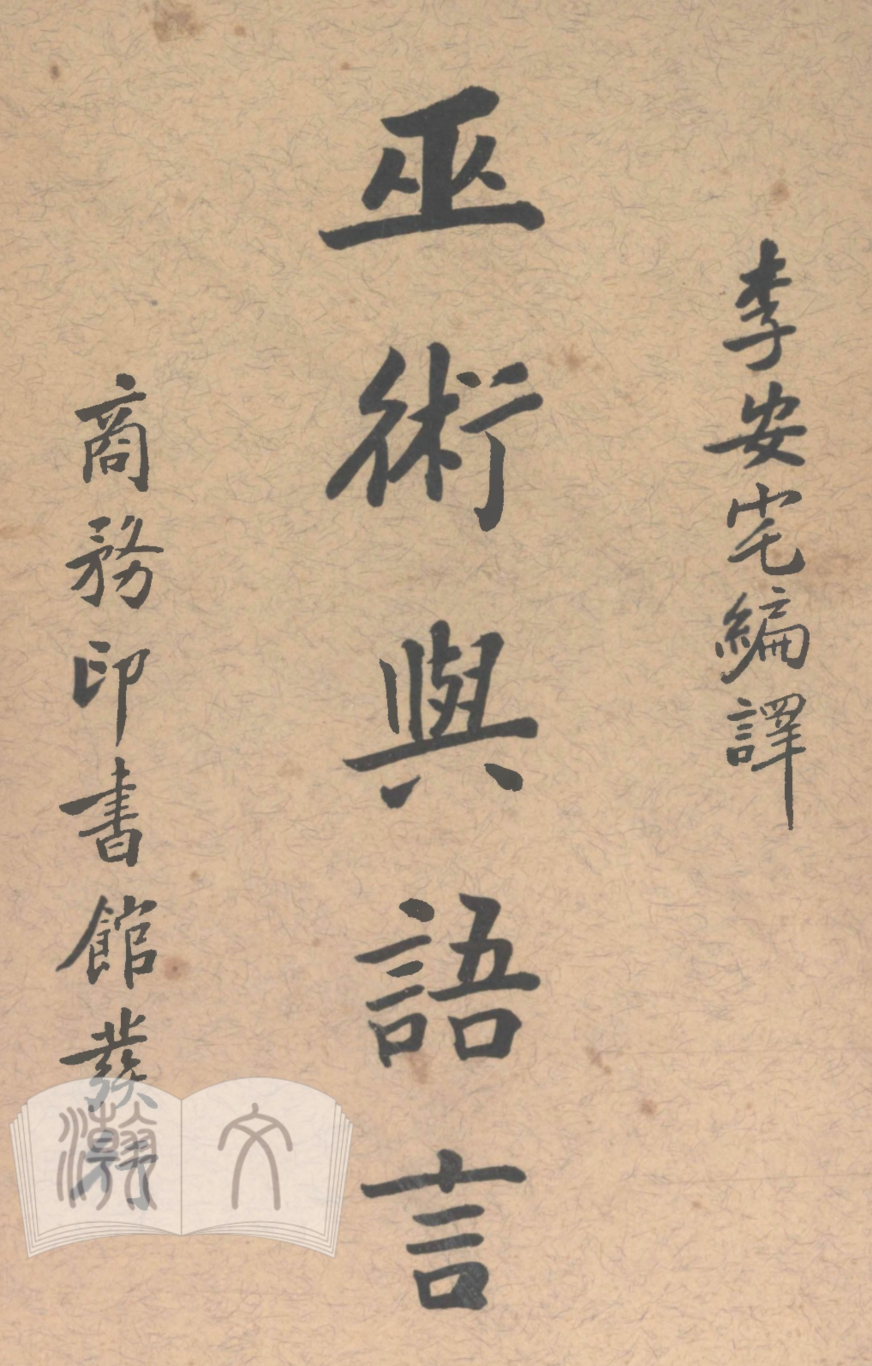 李安宅編譯
巫術與語言
商務印書館發行
瀚文